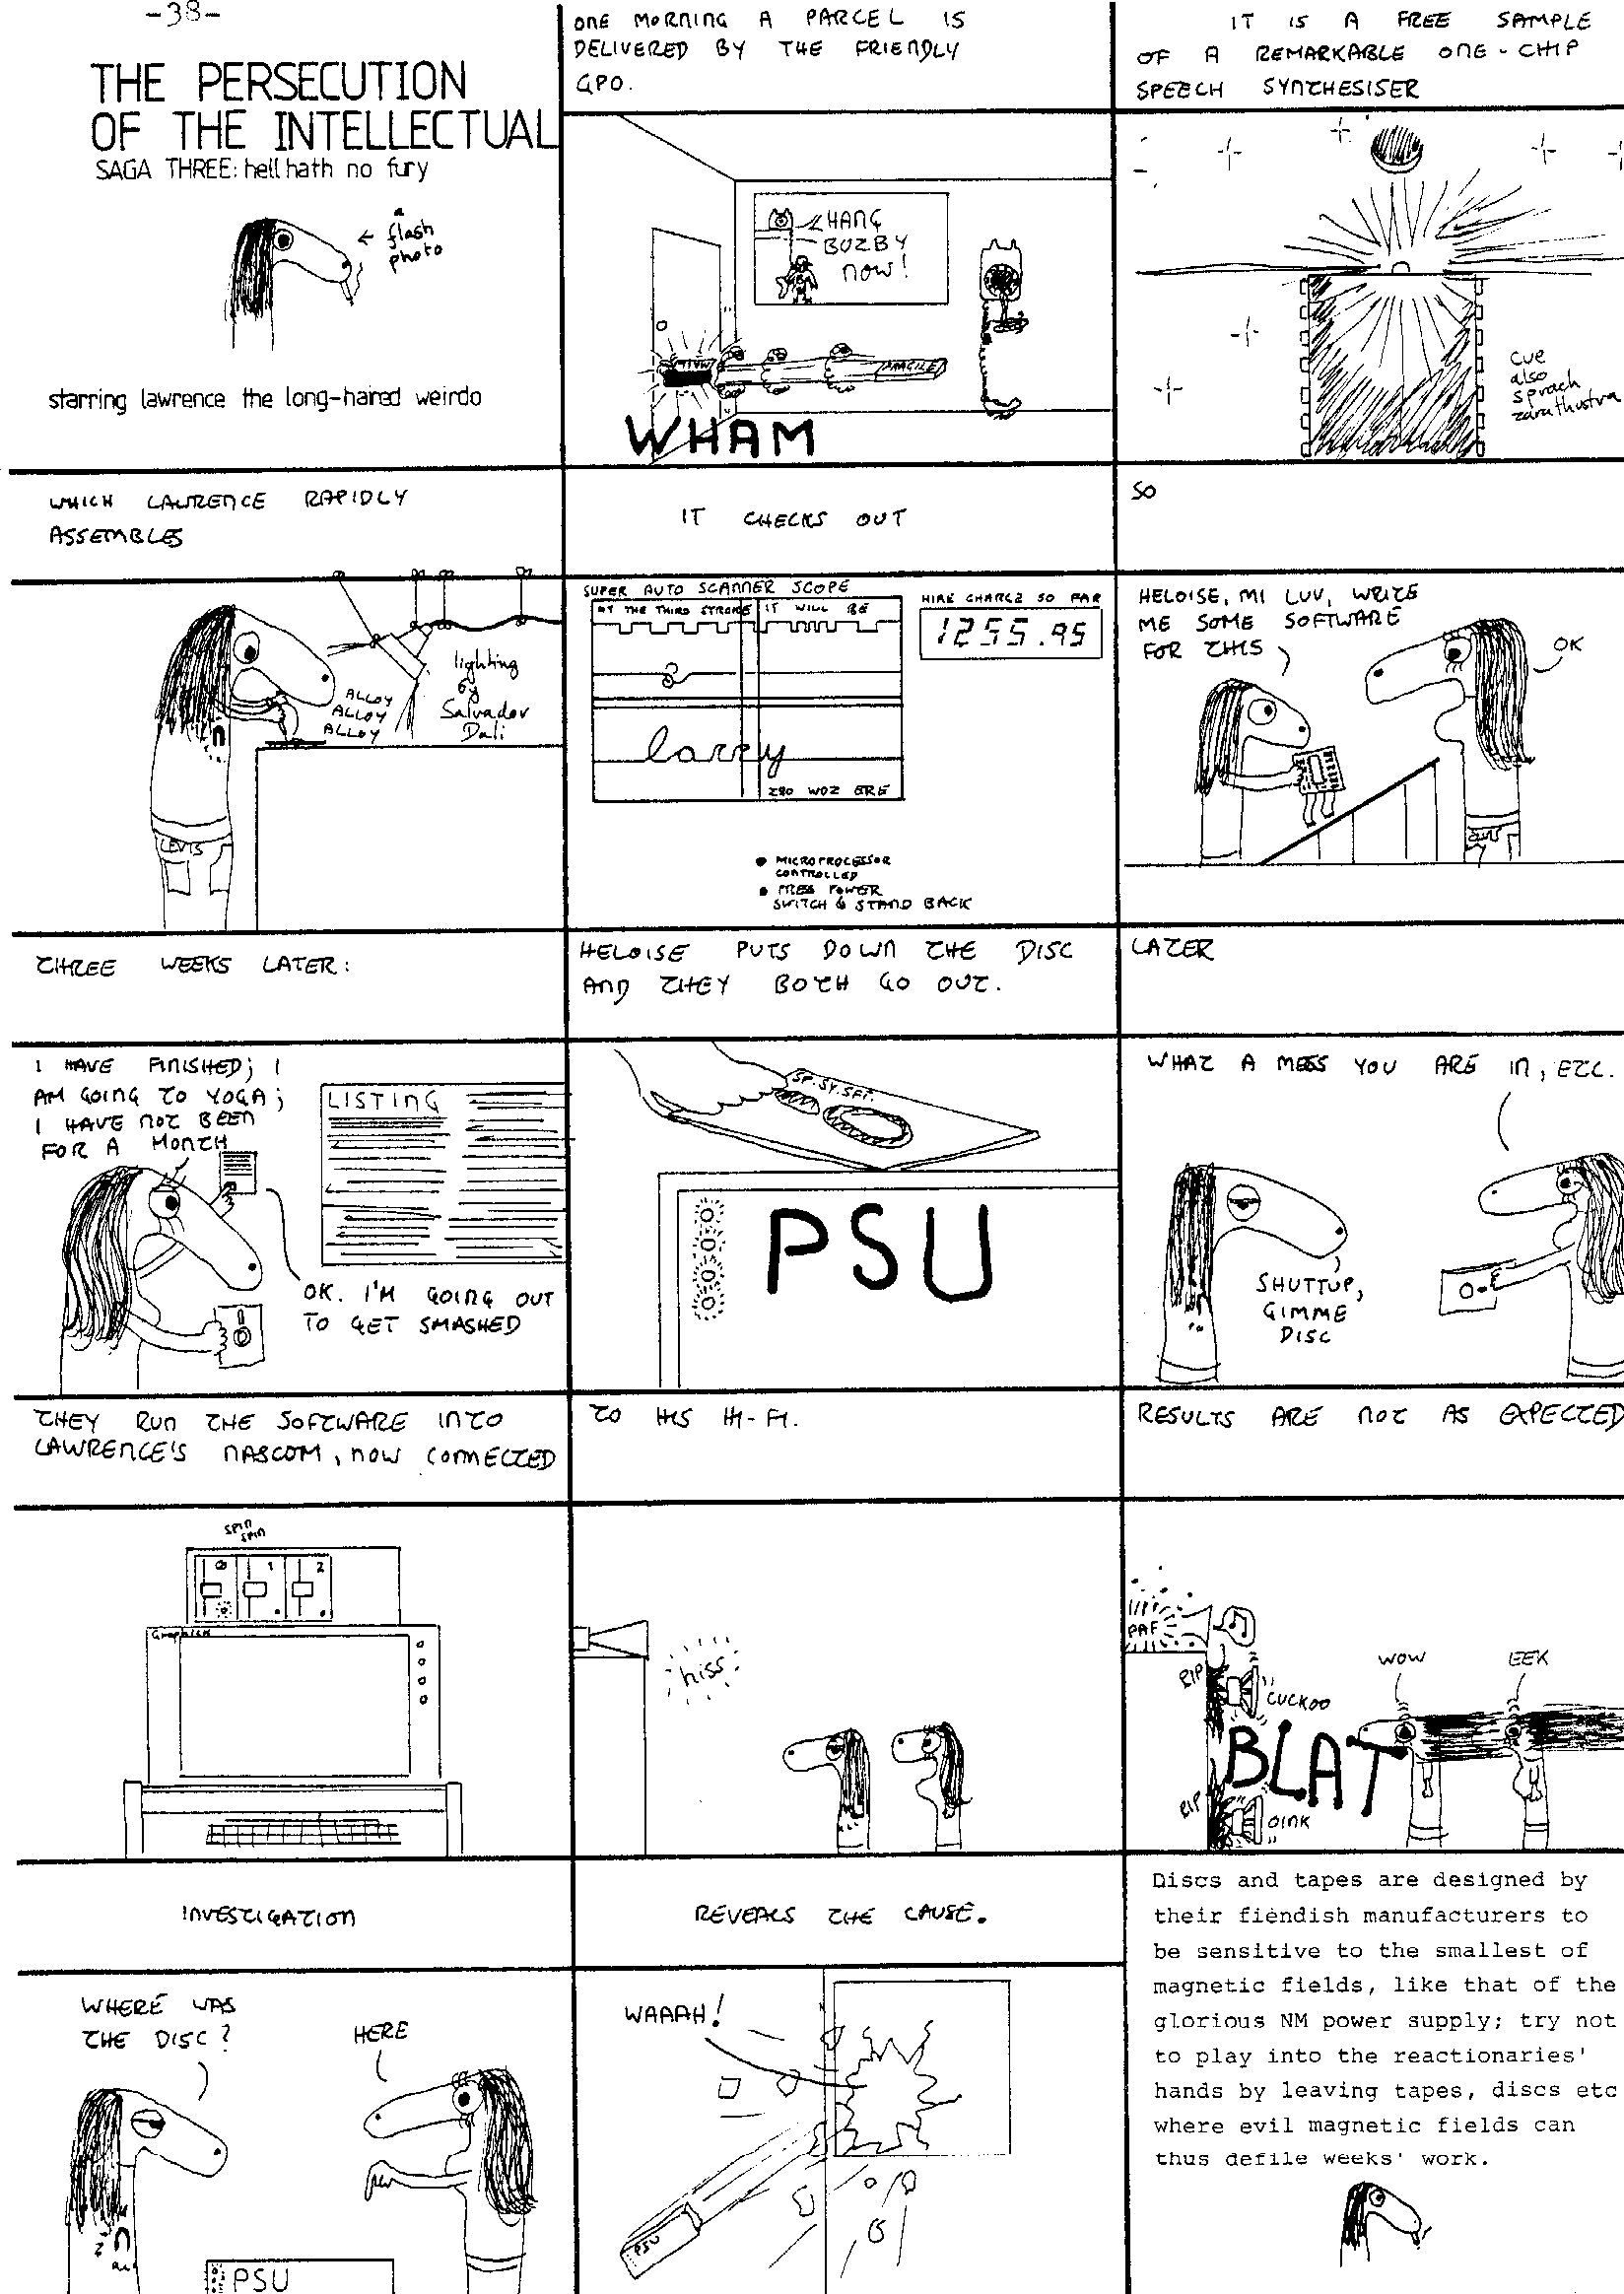 -38-
THE PERSECUTION
OF THE INTELLECTUAL
SAGA THREE: hell hath no fury
a
flash
photo
starring lawrence the long-haired weirdo
ONE MORNING A PARCEL IS
DELIVERED BY THE FRIENDLY
GPO.
HANG
BUZBY
NOW!
FRAGILE
WHAM
IT IS A FREE SAMPLE
OF A REMARKABLE ONE-CHIP
SPEECH SYNTHESISER
cue
also
sprach
zarathustra
WHICH LAWRENCE RAPIDLY
ASSEMBLES
ALLOY
ALLOY
ALLOY
lighting
by
Salvador
Dali
LEVIS
IT CHECKS OUT
SUPER AUTO SCANNER SCOPE
AT THE THIRD STROKE IT WILL BE
larry
Z80 WOZ ERE
HIRE CHARGE SO FAR
1255.95
• MICROPROCESSOR
CONTROLLED
• PRESS POWER
SWITCH & STAND BACK
SO
HELOISE, MI LUV, WRITE
ME SOME SOFTWARE
FOR THIS
OK
THREE WEEKS LATER:
I HAVE FINISHED; I
AM GOING TO YOGA;
I HAVE NOT BEEN
FOR A MONTH
LISTING
OK. I'M GOING OUT
TO GET SMASHED
HELOISE PUTS DOWN THE DISC
AND THEY BOTH GO OUT.
SP.SY.SFT.
PSU
LATER
WHAT A MESS YOU ARE IN, ETC.
SHUTTUP,
GIMME
DISC
THEY RUN THE SOFTWARE INTO
LAWRENCE'S NASCOM, NOW CONNECTED
SPIN
SPIN
0 1 2
TO HIS HI-FI.
hiss
RESULTS ARE NOT AS EXPECTED
PAF
RIP
CUCKOO
BLAT
RIP
OINK
WOW
EEK
INVESTIGATION
WHERE WAS
THE DISC?
HERE
PSU
REVEALS THE CAUSE.
WAAAH!
PSU
Discs and tapes are designed by
their fiendish manufacturers to
be sensitive to the smallest of
magnetic fields, like that of the
glorious NM power supply; try not
to play into the reactionaries'
hands by leaving tapes, discs etc
where evil magnetic fields can
thus defile weeks' work.